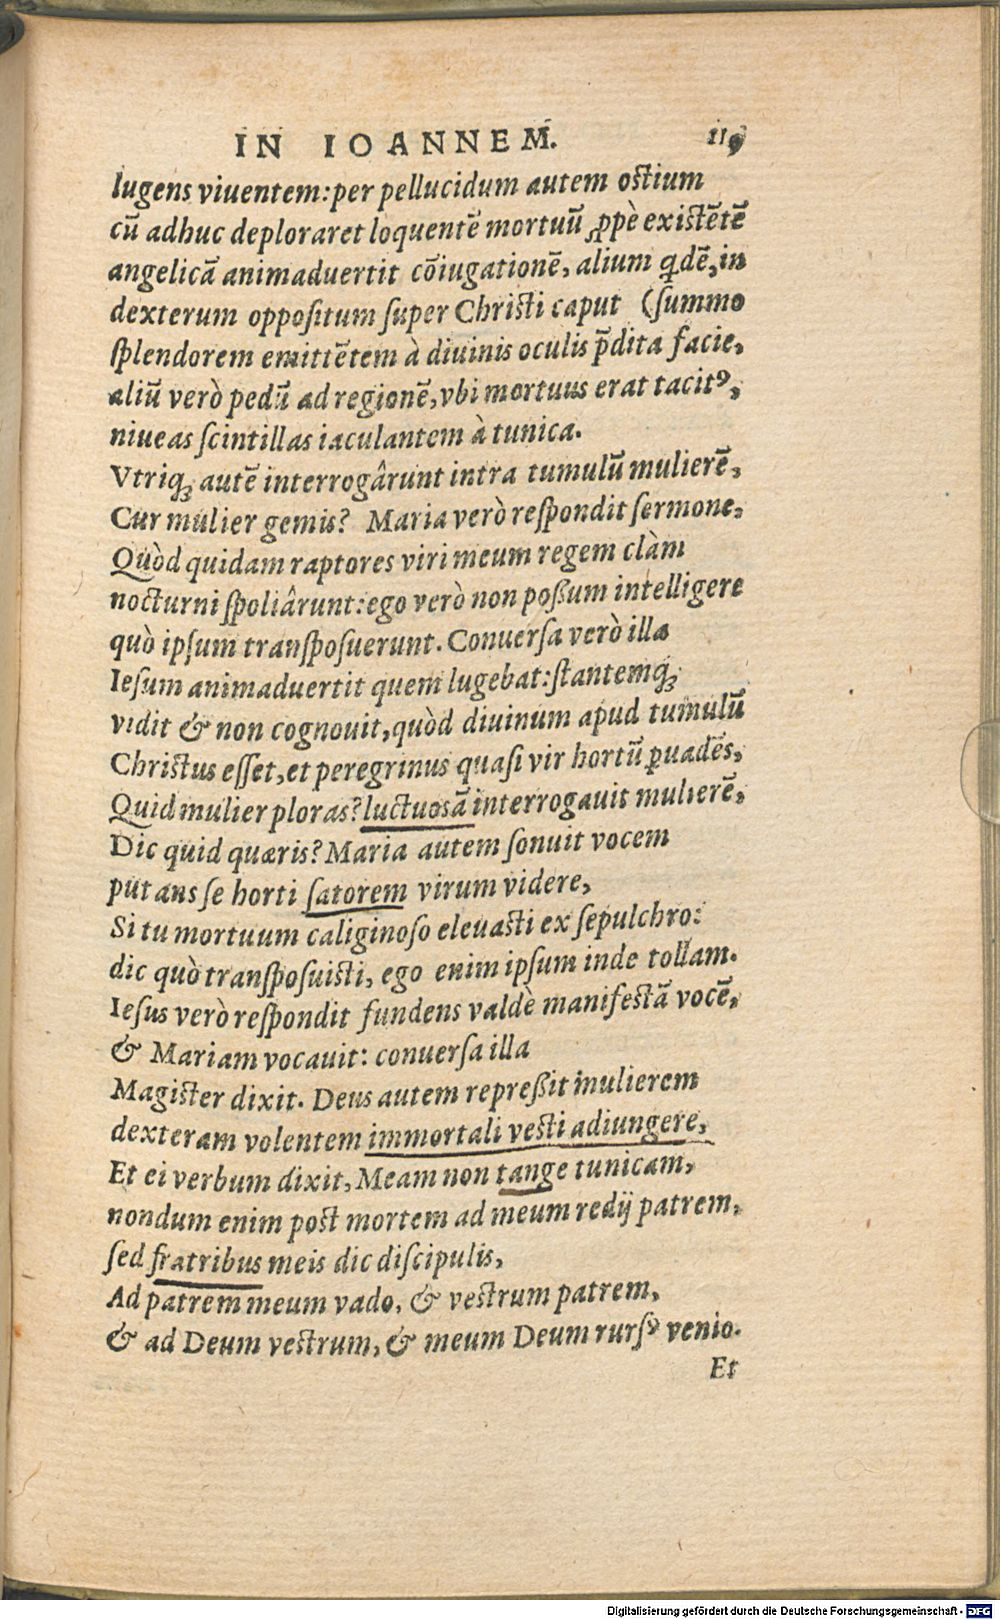 IN IOANNEM. 119
lugens viuentem: per pellucidum autem ostium
cū adhuc deploraret loquentē mortuū ꝓpè existētē
angelicā animaduertit cōiugationē, alium qdē, in
dexterum oppositum super Christi caput (summo
splendorem emittētem à diuinis oculis p̄dita facie,
aliū verò pedū ad regionē, vbi mortuus erat tacitꝰ,
niueas scintillas iaculantem à tunica.
Vtriq; autē interrogârunt intra tumulū mulierē,
Cur mulier gemis? Maria verò respondit sermone,
Quòd quidam raptores viri meum regem clàm
nocturni spoliârunt: ego verò non possum intelligere
quò ipsum transposuerunt. Conuersa verò illa
Iesum animaduertit quem lugebat: stantemq;
vidit & non cognouit, quòd diuinum apud tumulū
Christus esset, et peregrinus quasi vir hortū ꝑuadēs,
Quid mulier ploras? luctuosā interrogauit mulierē,
Dic quid quæris? Maria autem sonuit vocem
putans se horti satorem virum videre,
Si tu mortuum caliginoso eleuasti ex sepulchro:
dic quò transposuisti, ego enim ipsum inde tollam.
Iesus verò respondit fundens valdè manifestā vocē,
& Mariam vocauit: conuersa illa
Magister dixit. Deus autem repressit mulierem
dexteram volentem immortali vesti adiungere,
Et ei verbum dixit, Meam non tange tunicam,
nondum enim post mortem ad meum redij patrem,
sed fratribus meis dic discipulis,
Ad patrem meum vado, & vestrum patrem,
& ad Deum vestrum, & meum Deum rursꝰ venio.
Et
Digitalisierung gefördert durch die Deutsche Forschungsgemeinschaft - DFG